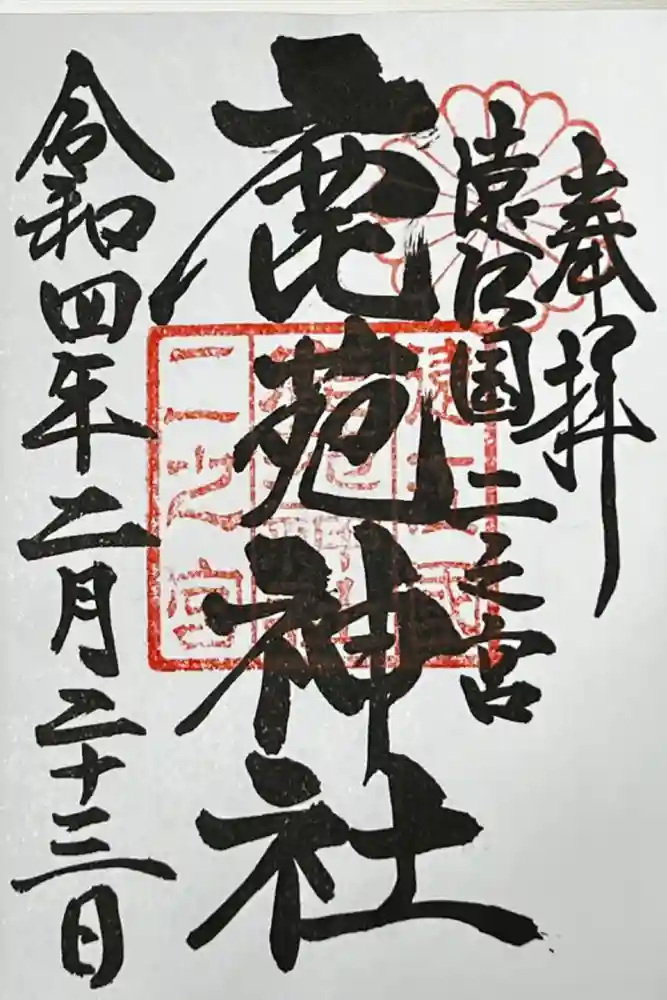 奉拝
遠江国 二之宮
鹿苑神社
令和四年二月二十三日
遠江国
鹿苑神社
二之宮